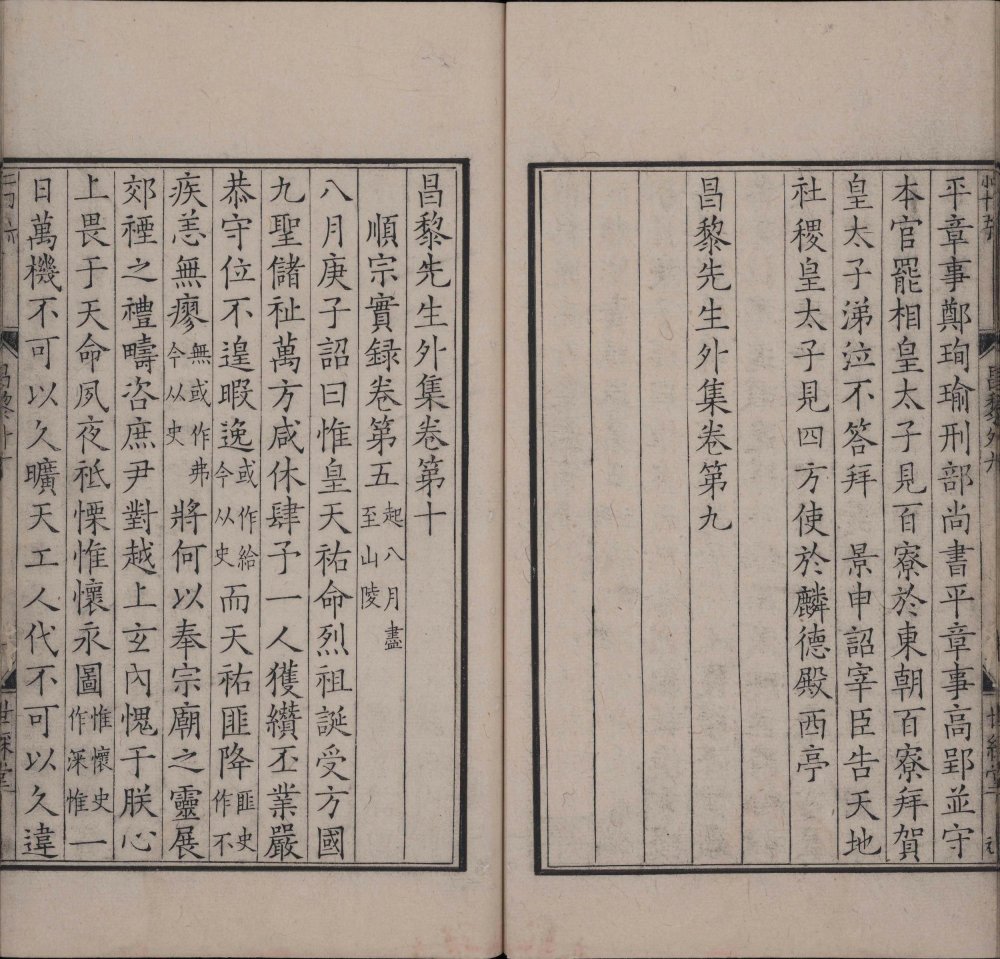 平章事鄭珣瑜刑部尚書平章事高郢並守
本官罷相皇太子見百寮於東朝百寮拜賀
皇太子涕泣不答拜　景申詔宰臣告天地
社稷皇太子見四方使於麟德殿西亭
昌黎先生外集卷第九
昌黎先生外集卷第十
順宗實録卷第五起八月盡至山陵
八月庚子詔曰惟皇天祐命烈祖誕受方國
九聖儲祉萬方咸休肆予一人獲纘丕業嚴
恭守位不遑暇逸或作給今从史而天祐匪降匪史作不
疾恙無廖無或作弗今从史將何以奉宗廟之靈展
郊禋之禮疇咨庶尹對越上玄內愧于朕心
上畏于天命夙夜祗慄惟懷永圖惟懷史作深惟一
日萬機不可以久曠天工人代不可以久違
昌黎外九
世綵堂